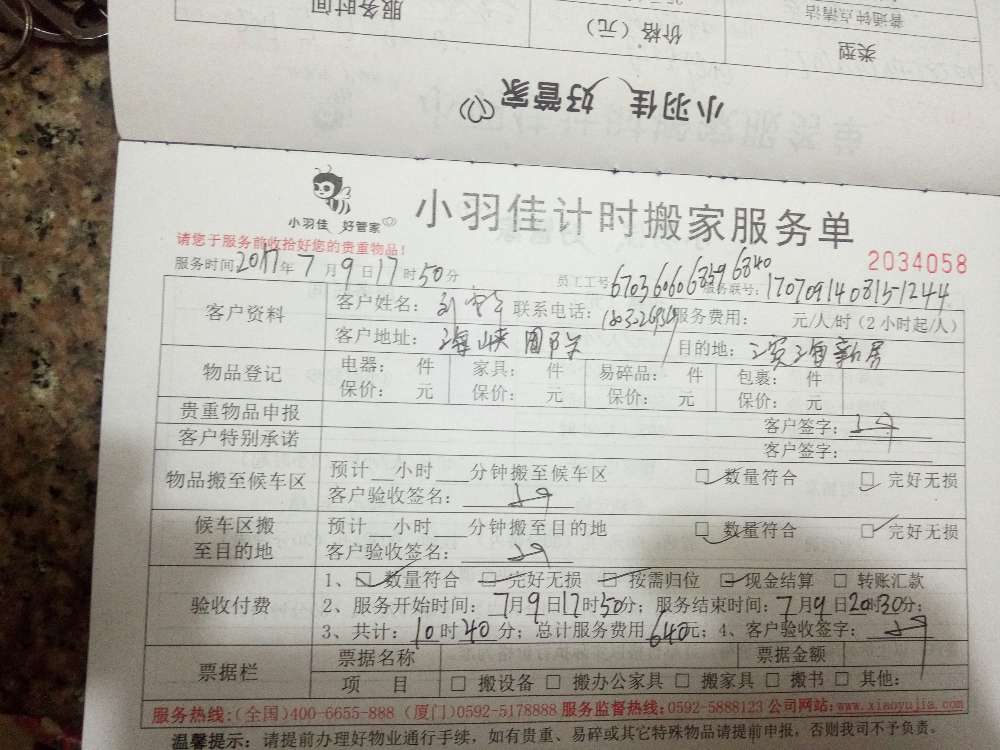 服务时间
价格（元）
普通钟点清洁
类型
小羽佳 好管家
小羽佳 好管家
小羽佳计时搬家服务单
请您于服务前收拾好您的贵重物品！
2034058
服务时间2017年7月9日17时50分 员工工号 服务联号：170709140815-1244
客户资料 客户姓名：刘 联系电话： 服务费用： 元/人/时（2小时起/人）
客户地址：海峡国际 目的地：滨海新居
物品登记 电器： 件 家具： 件 易碎品： 件 包裹： 件
保价： 元 保价： 元 保价： 元 保价： 元
贵重物品申报 客户签字：
客户特别承诺 客户签字：
物品搬至候车区 预计__小时___分钟搬至候车区 □ 数量符合 □ 完好无损
客户验收签名：
候车区搬至目的地 预计__小时___分钟搬至目的地 □ 数量符合 □ 完好无损
客户验收签名：
验收付费 1、□ 数量符合 □ 完好无损 □ 按需归位 □ 现金结算 □ 转账汇款
2、服务开始时间：7月9日17时50分；服务结束时间：7月9日20时30分；
3、共计：10时40分；总计服务费用640元；4、客户验收签字：
票据栏 票据名称 票据金额
项 目 □ 搬设备 □ 搬办公家具 □ 搬家具 □ 搬书 □ 其他：
服务热线：(全国)400-6655-888 (厦门)0592-5178888 服务监督热线：0592-5888123 公司网站：www.xiaoyujia.com
温馨提示：请提前办理好物业通行手续，如有贵重、易碎或其它特殊物品请提前申报，否则我司不予负责。